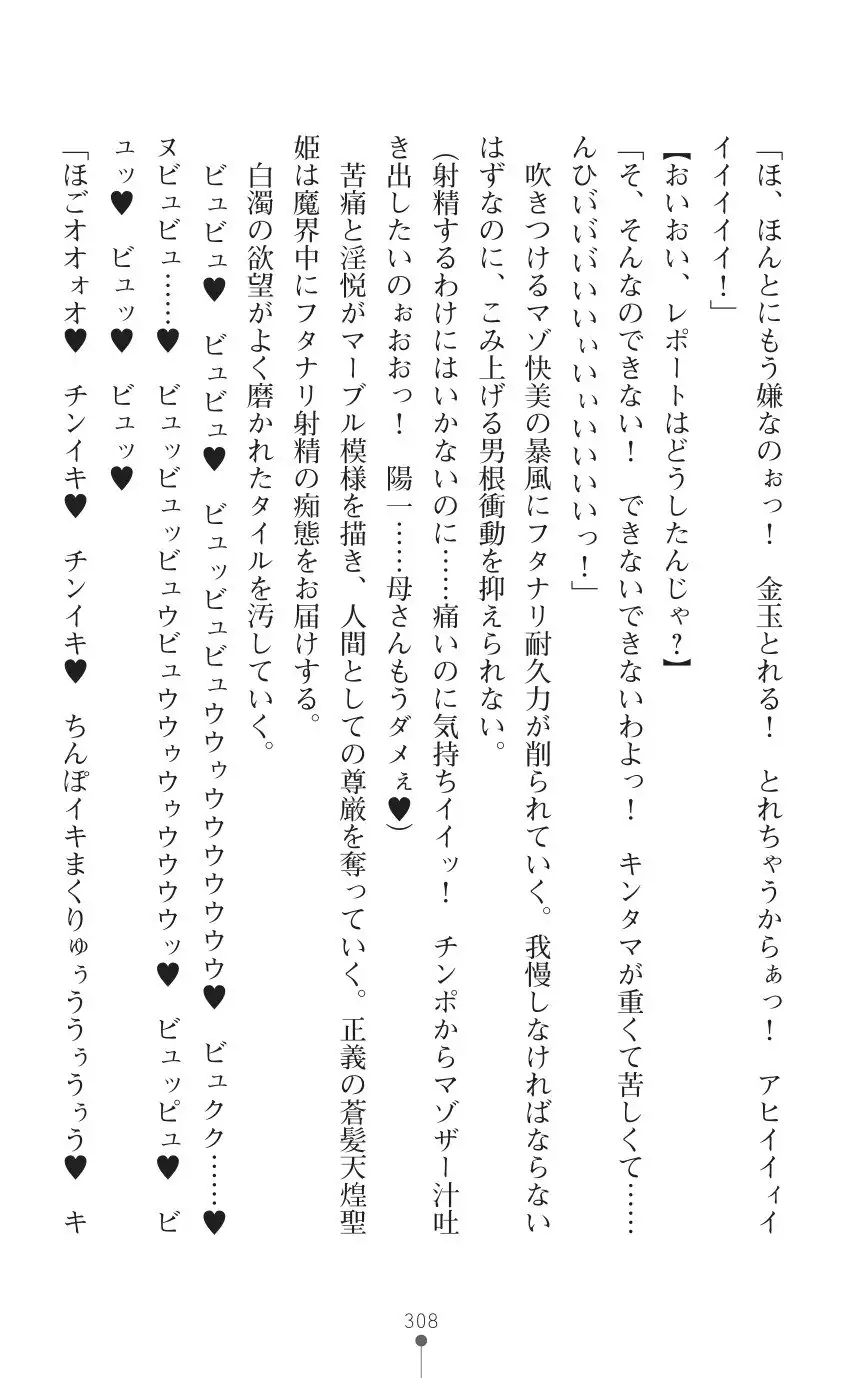 「ほ、ほんとにもう嫌なのぉっ！　金玉とれる！　とれちゃうからぁっ！　アヒイイィイ
イイイイイ！」
【おいおい、レポートはどうしたんじゃ？】
「そ、そんなのできない！　できないできないわよっ！　キンタマが重くて苦しくて……
んひいいぃいぃいいいいっ！」
　吹きつけるマゾ快美の暴風にフタナリ耐久力が削られていく。我慢しなければならない
はずなのに、こみ上げる男根衝動を抑えられない。
（射精するわけにはいかないのに……痛いのに気持ちイイッ！　チンポからマゾザー汁吐
き出したいのぉおおっ！　陽一……母さんもうダメぇ♥）
　苦痛と淫悦がマーブル模様を描き、人間としての尊厳を奪っていく。正義の蒼髪天煌聖
姫は魔界中にフタナリ射精の痴態をお届けする。
　白濁の欲望がよく磨かれたタイルを汚していく。
　ビュビュ♥　ビュビュ♥　ビュッビュビュウウゥウウウウウウウ♥　ビュクク……♥
ヌビュビュ……♥　ビュッビュッビュウビュウウゥウゥウウウウッ♥　ビュッピュ♥　ビ
ュッ♥　ビュッ♥　ビュッ♥
「ほごオオォオ♥　チンイキ♥　チンイキ♥　ちんぽイキまくりゅぅううぅうぅう♥　キ
308